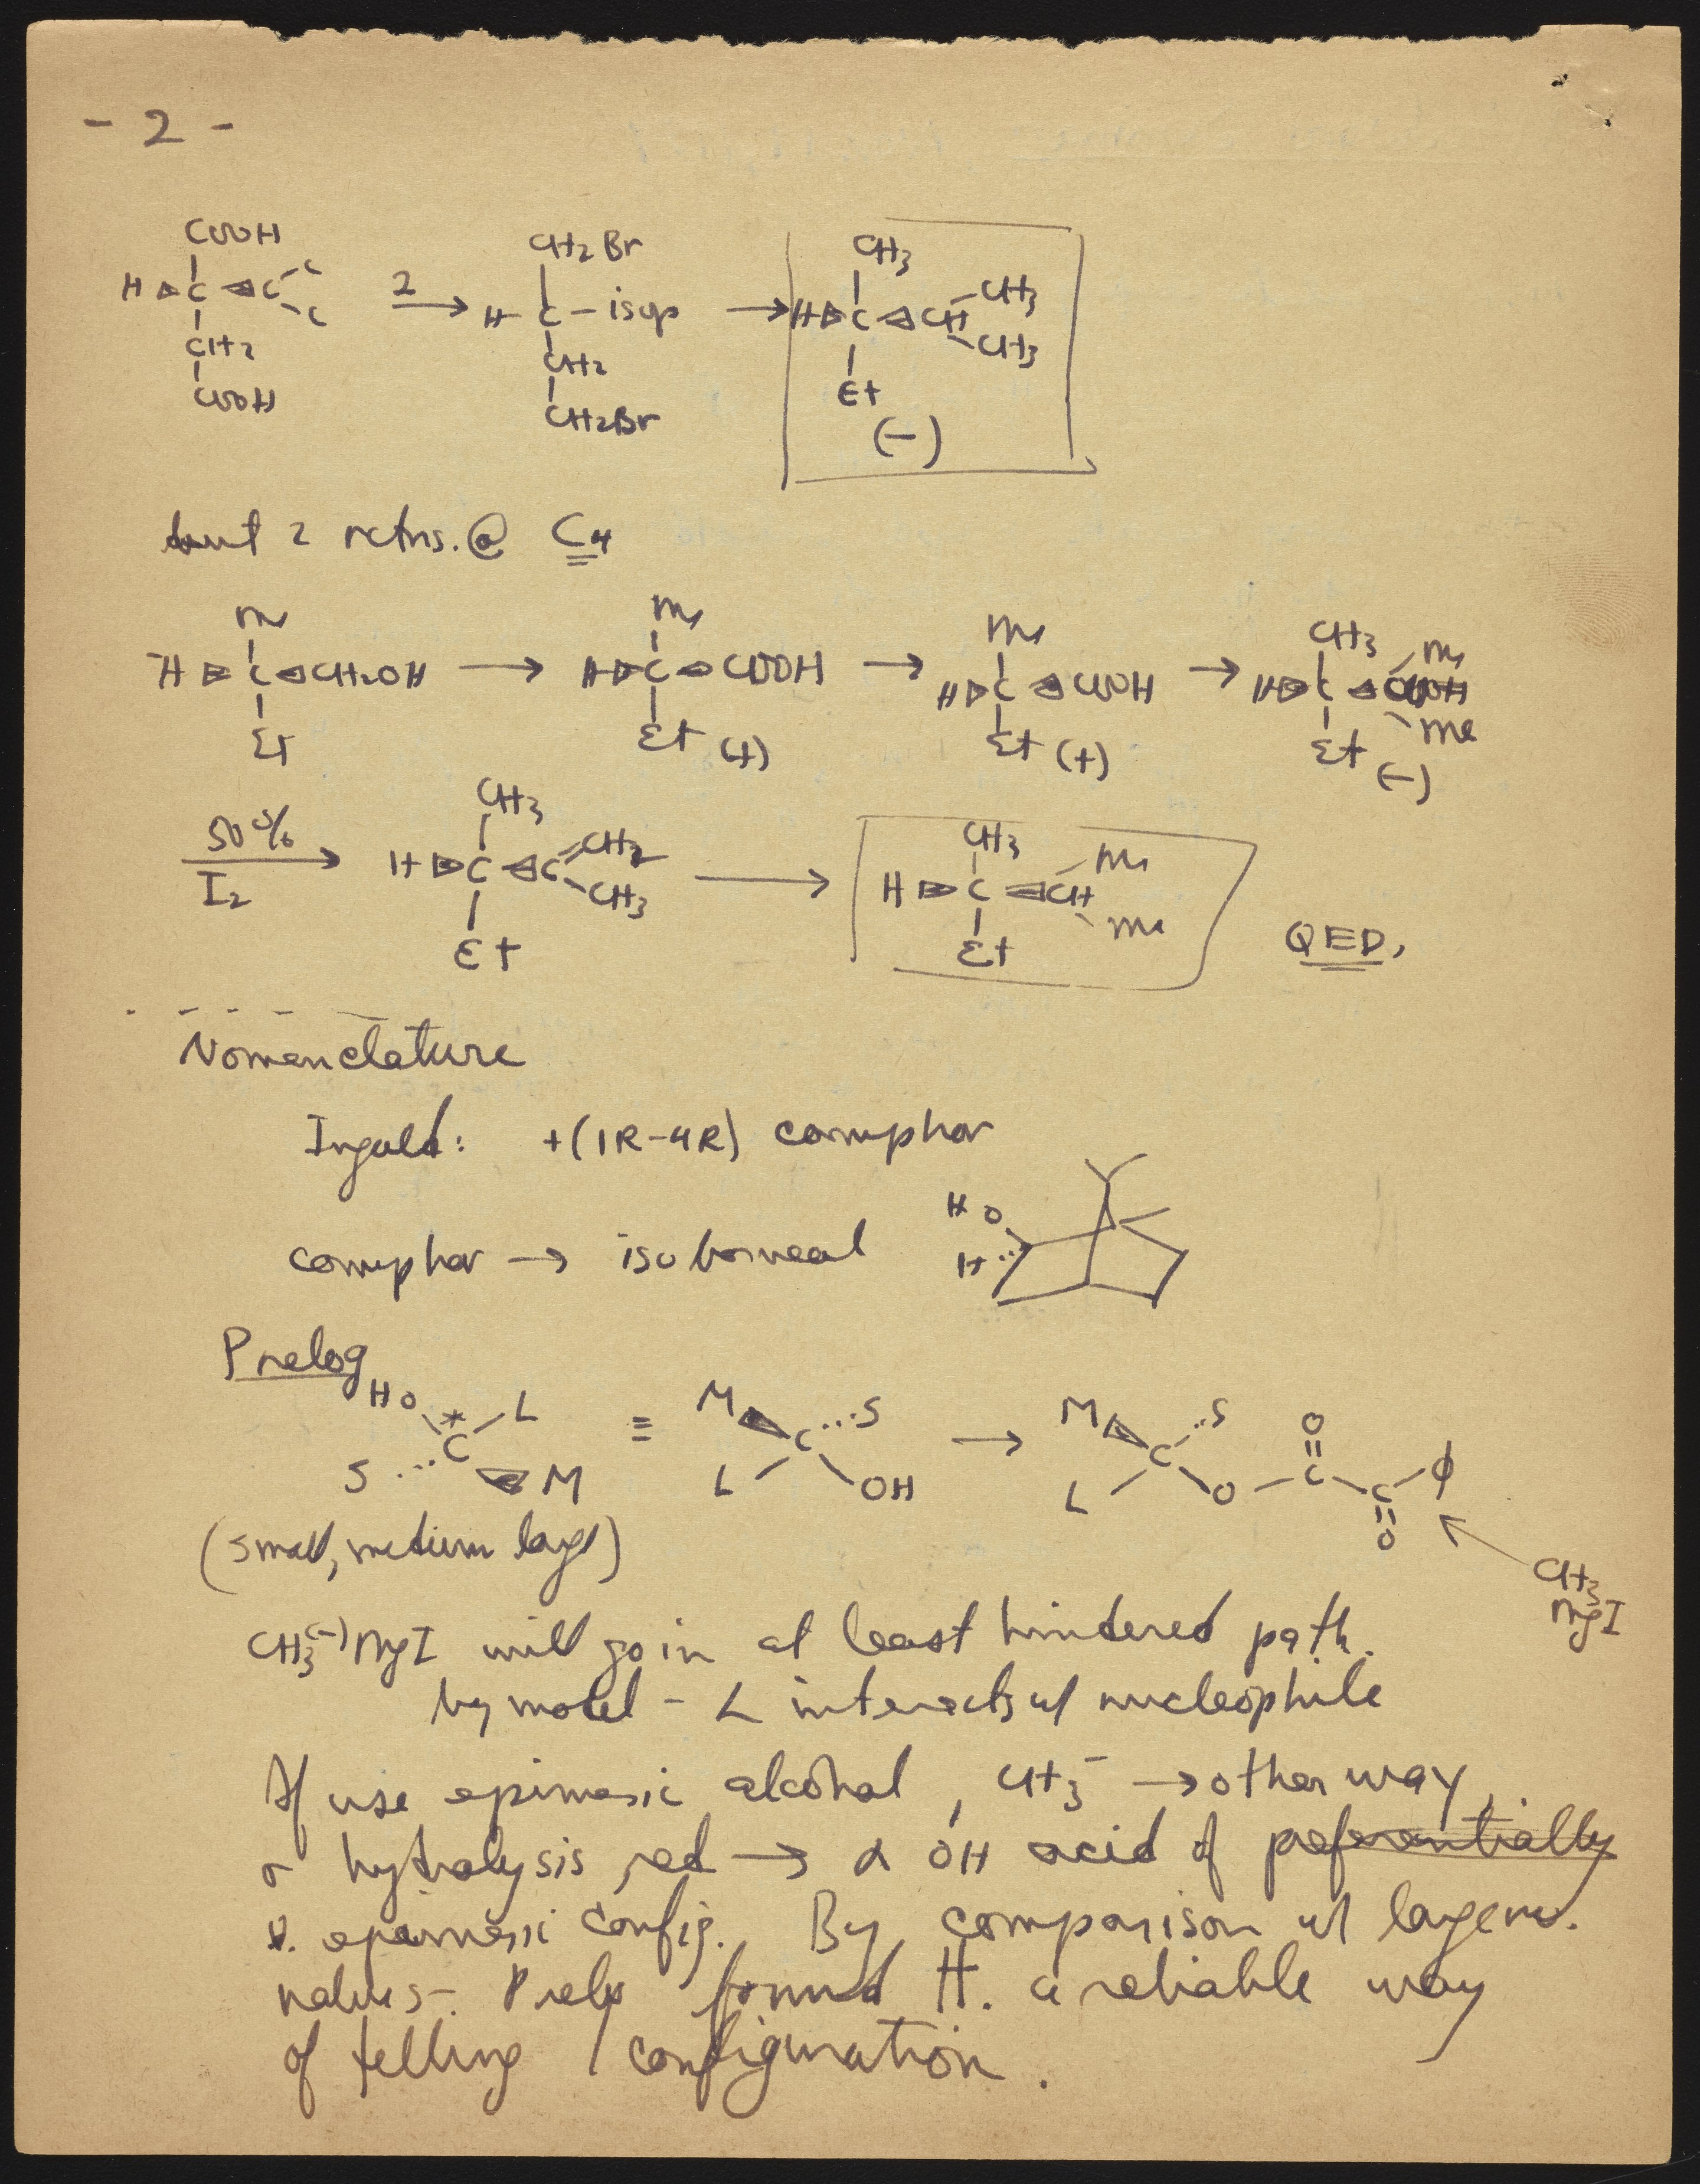 - 2 -
COOH CH2Br CH3
H C C C 2 H C - isop H C CH CH3
C CH3
CH2 CH2 Et
COOH CH2Br (-)
but 2 rctns. @ C4
Me Me Me CH3 Me
H C CH2OH → H C COOH → H C COOH → H C COH
Et Et (+) Et (+) Et (-) Me
50% CH3 CH3
I2 → H C C CH2 CH3 → H C CH Me Me
Et Et QED.
Nomenclature
Ingold: +(1R-4R) camphor
camphor → isoborneol HO H
Prelog
HO * L M S M S O
C ≡ C → C C C ϕ
S M L OH L O O
(small, medium large) CH3
MgI
CH3(-)MgI will go in at least hindered path.
by model - L interacts w/ nucleophile
If use epimeric alcohol, CH3- → other way,
hydrolysis, red → α OH acid of preferentially
epimeric config. By comparison w/
Prelog found H. a reliable way
of telling configuration.